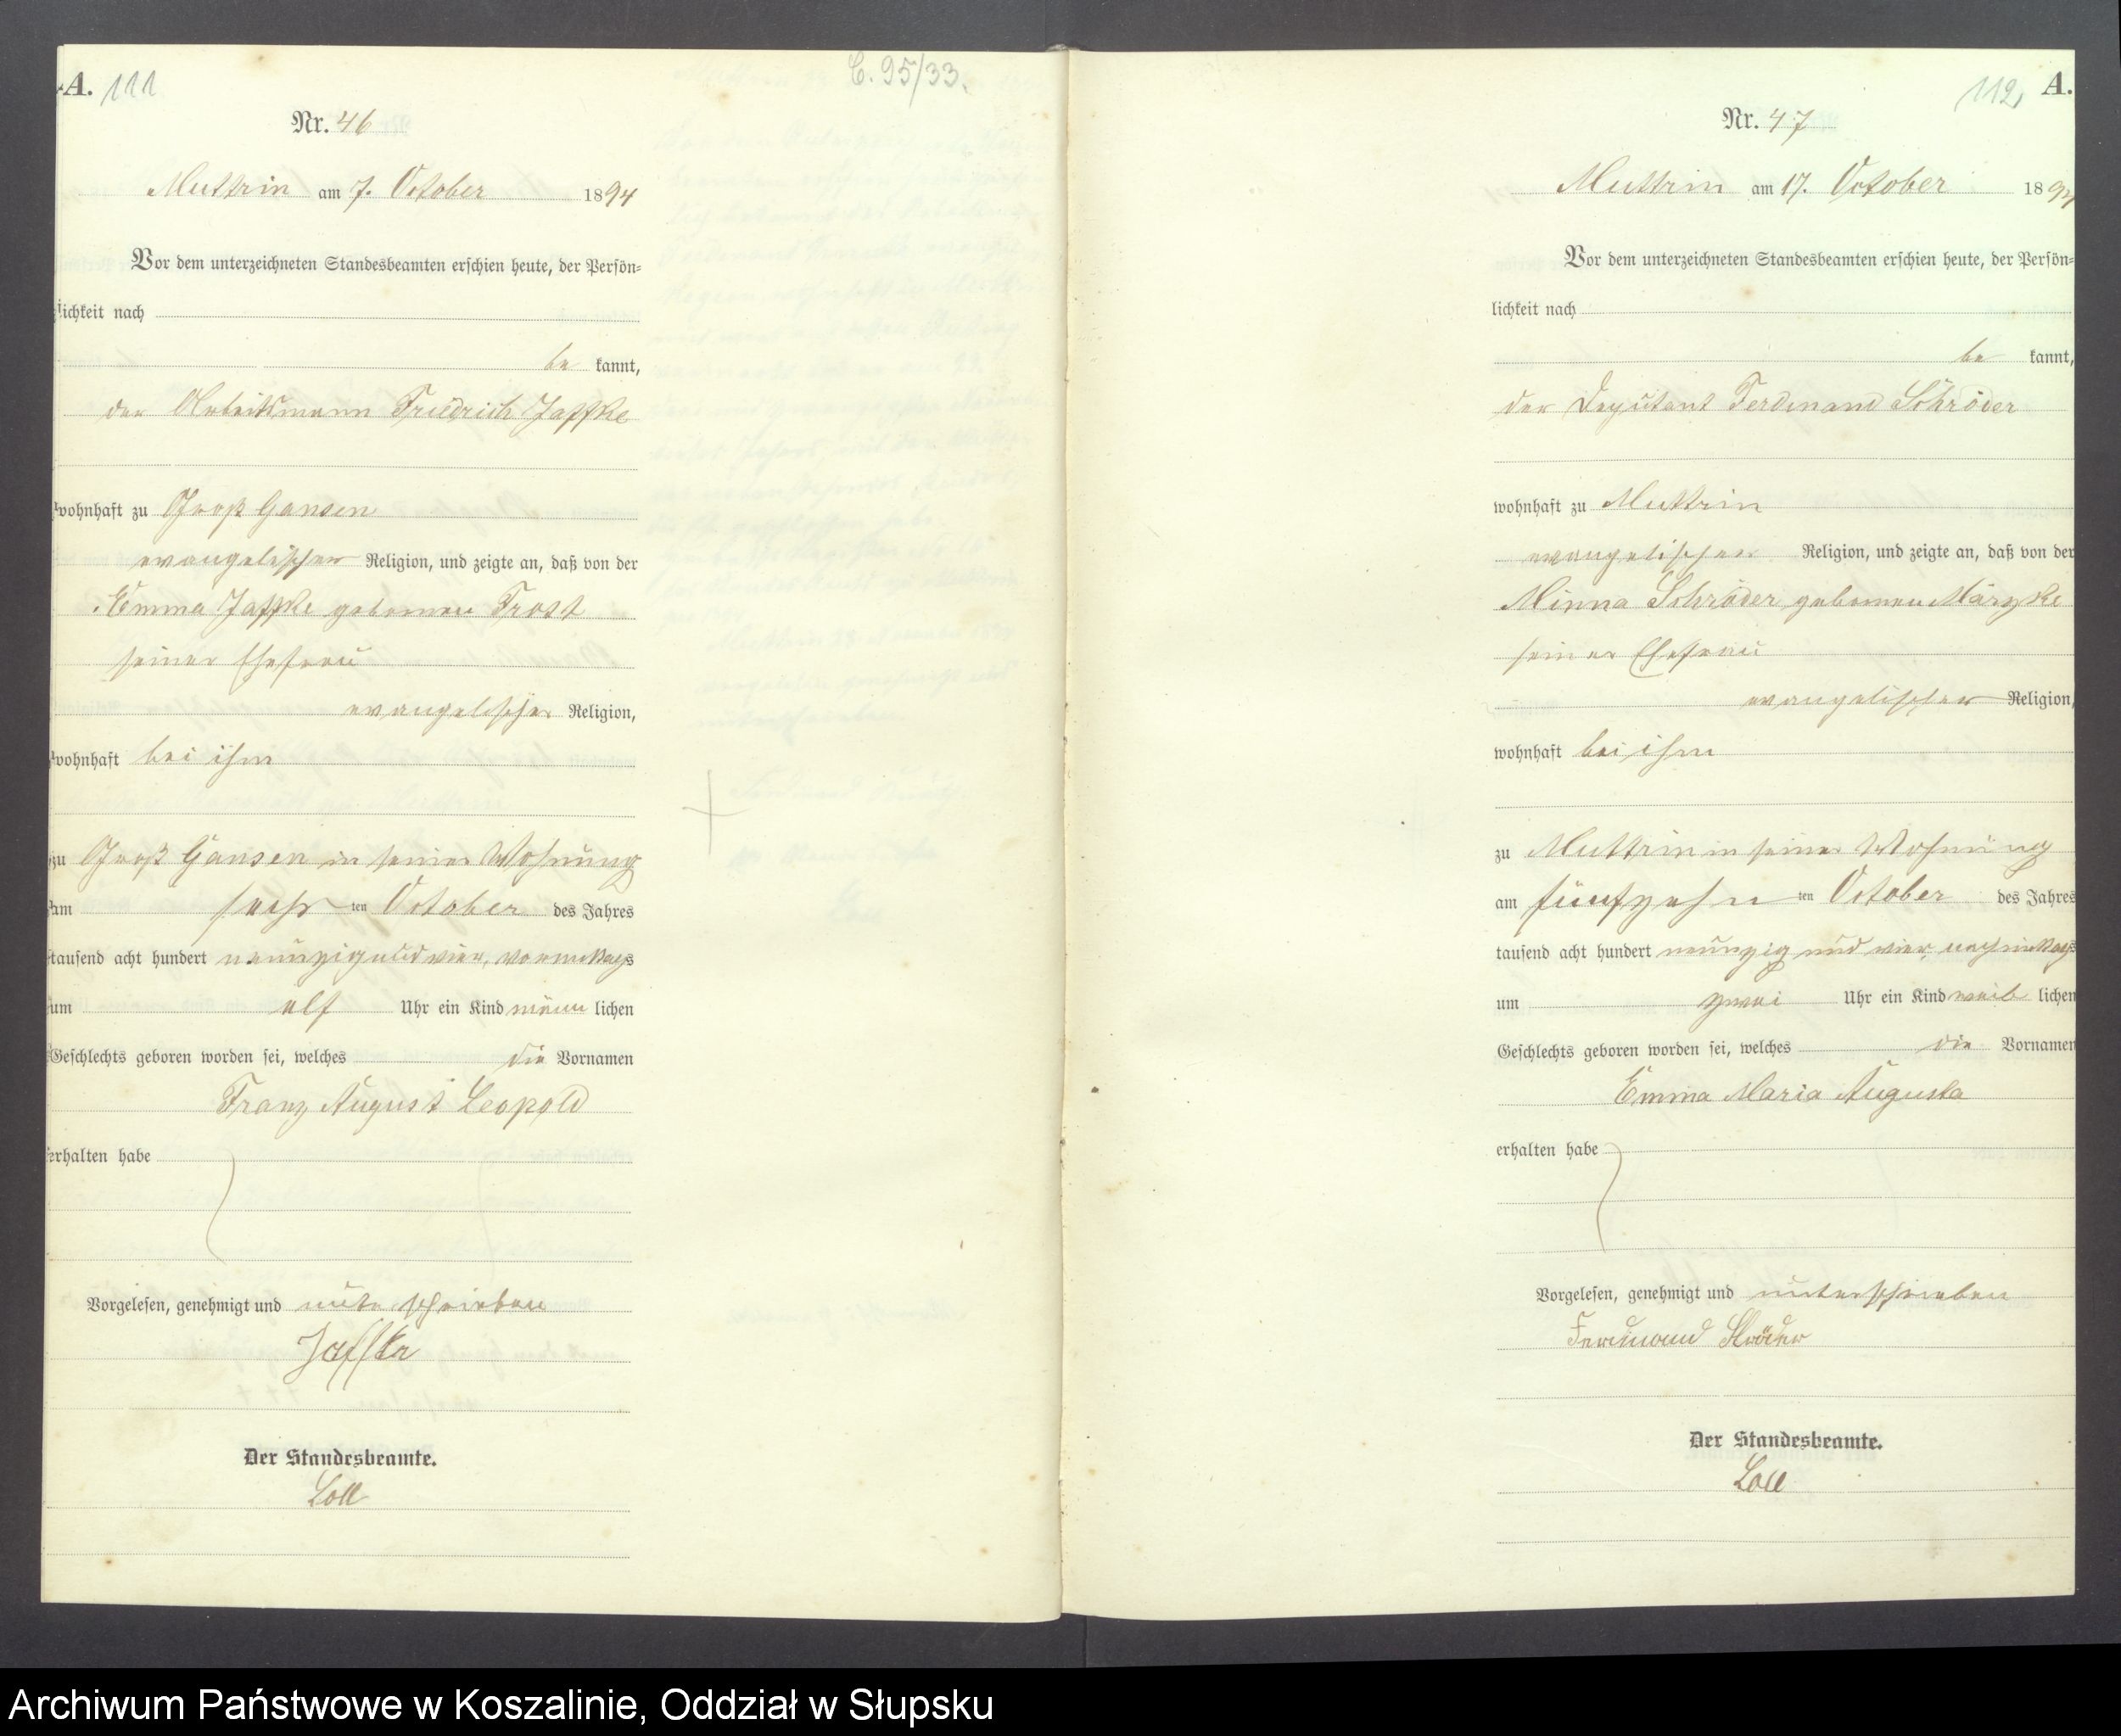 A. 111
C. 95/33.
Nr. 46
Muttrin am 7. October 1894
Vor dem unterzeichneten Standesbeamten erschien heute, der Persön-
lichkeit nach
be kannt,
der Arbeitsmann Friedrich Jaffke
wohnhaft zu Groß Gansen
evangelischer Religion, und zeigte an, daß von der
Emma Jaffke geborenen Trost
seiner Ehefrau
evangelischer Religion,
wohnhaft bei ihm
zu Groß Gansen in seiner Wohnung
am sechsten October des Jahres
tausend acht hundert neunzig und vier, vormittags
um elf Uhr ein Kind männlichen
Geschlechts geboren worden sei, welches die Vornamen
Franz August Leopold
erhalten habe
Vorgelesen, genehmigt und unterschrieben
Jaffke
Der Standesbeamte.
Loll
112, A.
Nr. 47
Muttrin am 17. October 1894
Vor dem unterzeichneten Standesbeamten erschien heute, der Persön-
lichkeit nach
be kannt,
der Deputant Ferdinand Schröder
wohnhaft zu Muttrin
evangelischer Religion, und zeigte an, daß von der
Minna Schröder geborenen
seiner Ehefrau
evangelischer Religion,
wohnhaft bei ihm
zu Muttrin in seiner Wohnung
am fünfzehnten October des Jahres
tausend acht hundert neunzig und vier, nachmittags
um zwei Uhr ein Kind weiblichen
Geschlechts geboren worden sei, welches die Vornamen
Emma Maria Augusta
erhalten habe
Vorgelesen, genehmigt und unterschrieben
Ferdinand
Der Standesbeamte.
Loll
Archiwum Państwowe w Koszalinie, Oddział w Słupsku